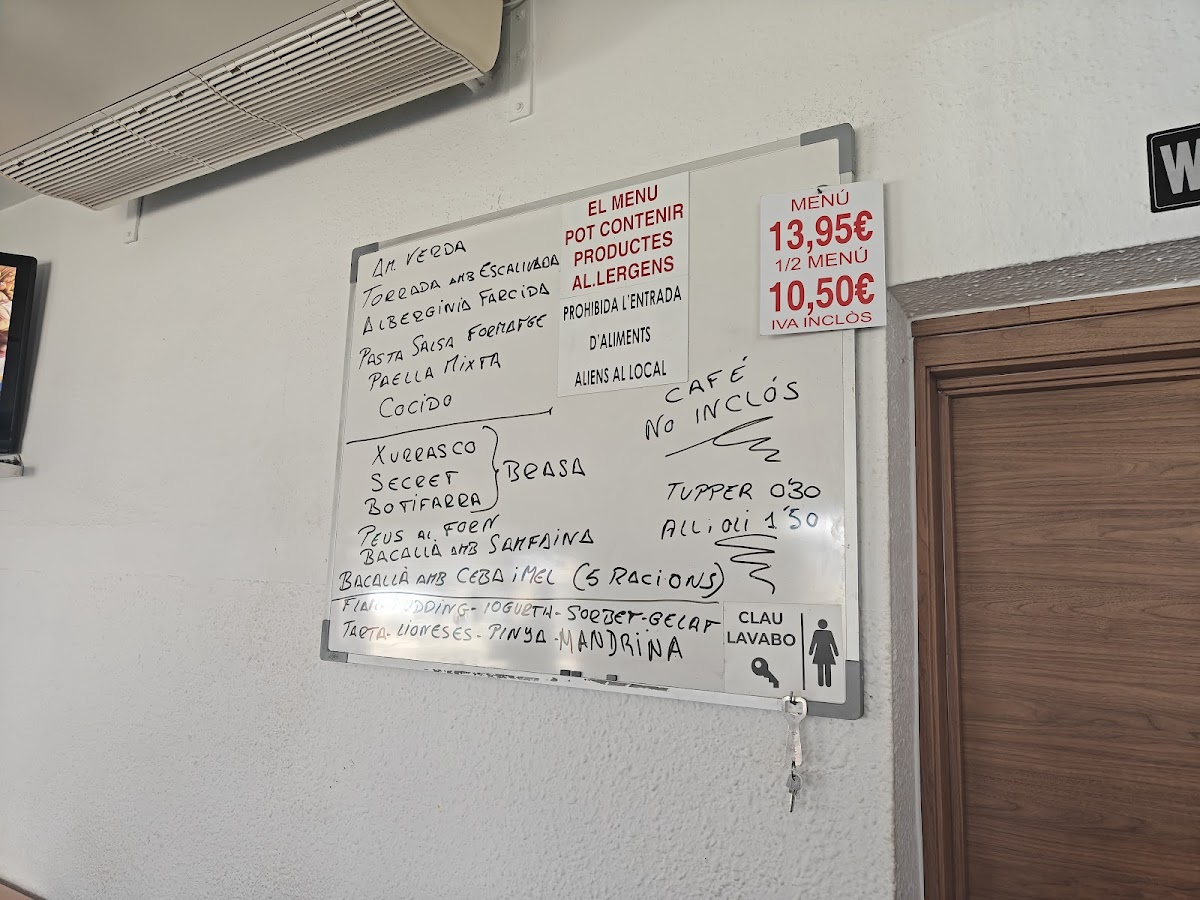 AM. VERDA
TORRADA AMB ESCALIVADA
ALBERGINIA FARCIDA
PASTA SALSA FORMATGE
PAELLA MIXTA
COCIDO
XURRASCO
SECRET
BOTIFARRA
BRASA
PEUS AL FORN
BACALLÀ AMB SAMFAINA
BACALLÀ AMB CEBA i MEL (5 RACIONS)
FLAN-PUDDING-IOGURTH-SORBET-GELAT
TARTA-LIONESES-PINYA-MANDRINA
EL MENU
POT CONTENIR
PRODUCTES
AL.LERGENS
PROHIBIDA L'ENTRADA
D'ALIMENTS
ALIENS AL LOCAL
MENÚ
13,95€
1/2 MENÚ
10,50€
IVA INCLÒS
CAFÉ
NO INCLÓS
TUPPER 0'30
ALL i OLI 1'50
CLAU
LAVABO
W